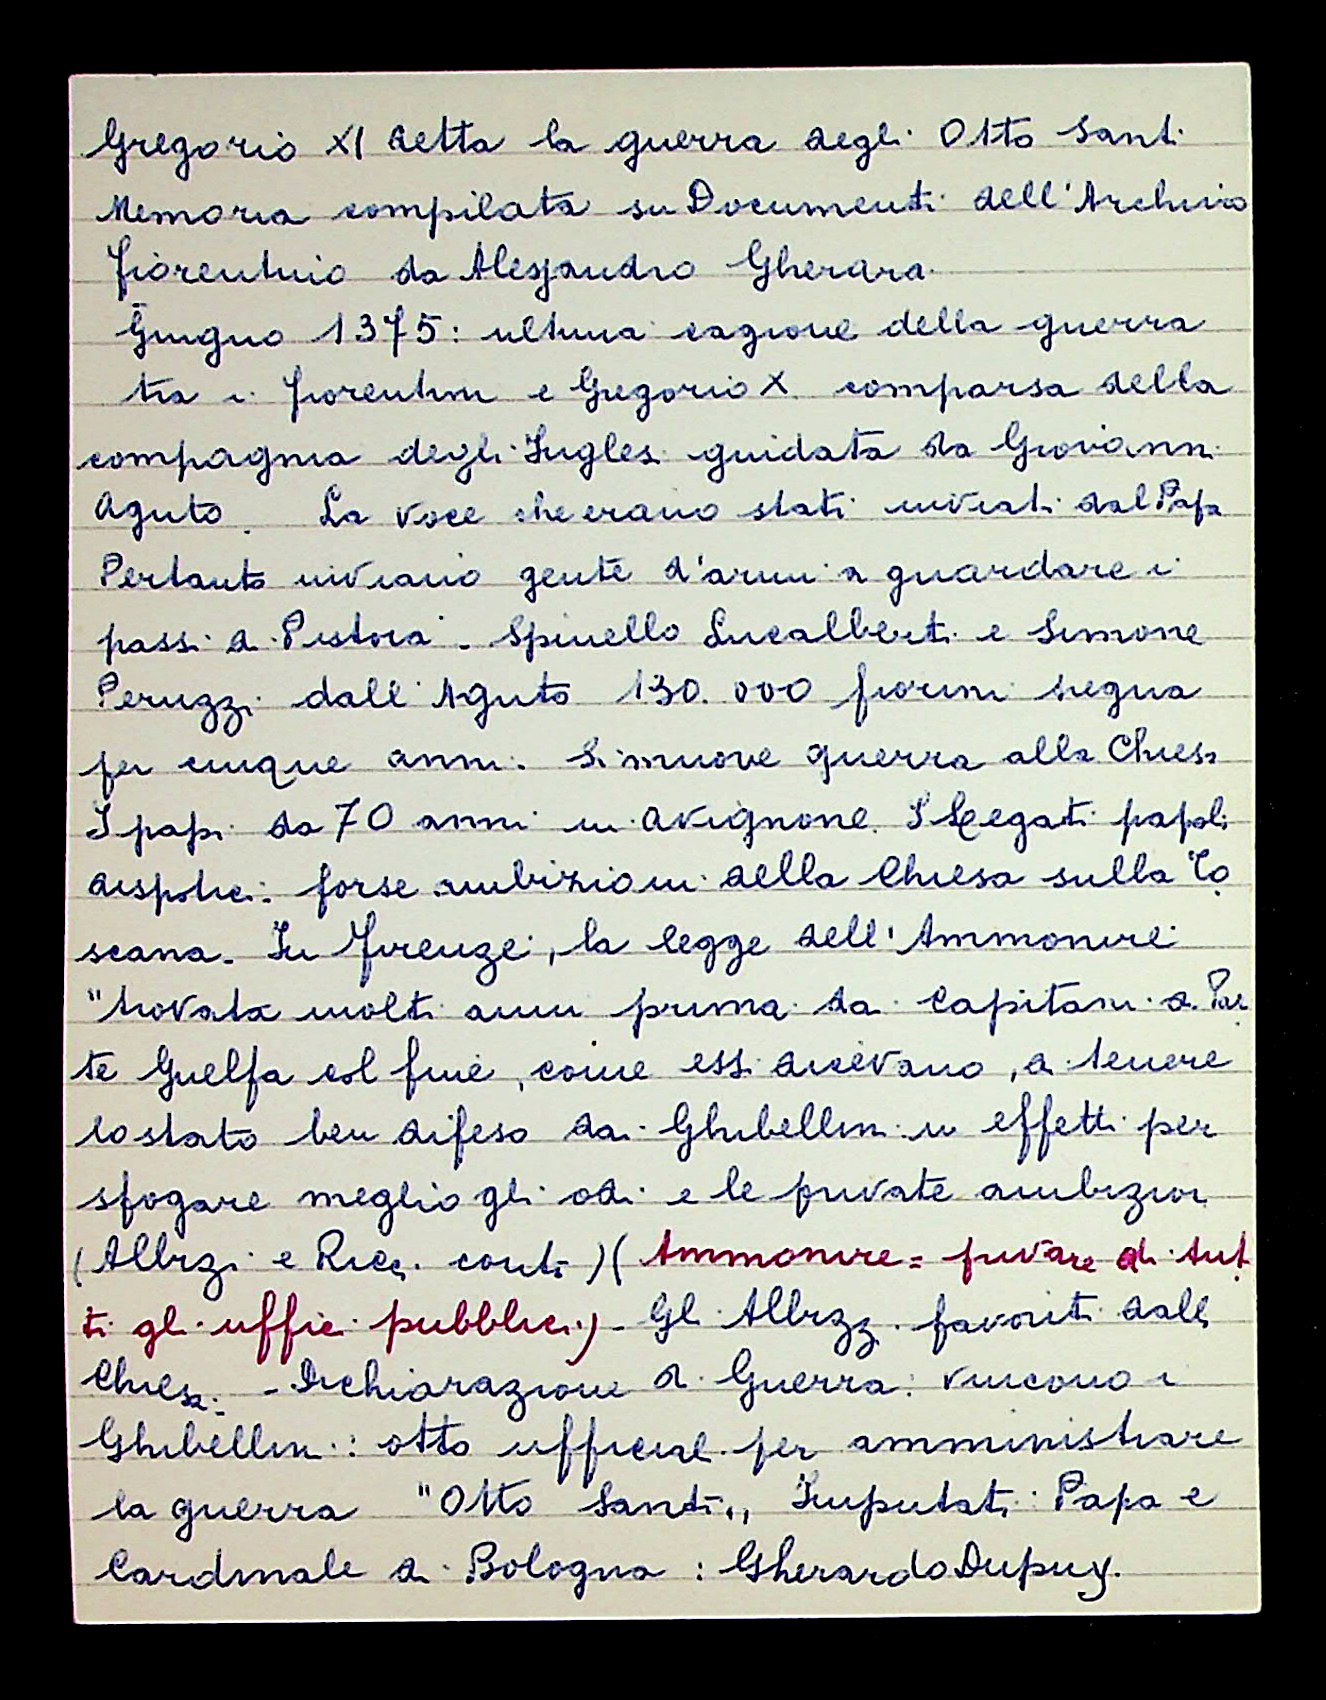 Gregorio XI detta la guerra degli Otto Santi
Memoria compilata su Documenti dell'Archivio
fiorentino da Alessandro Gherara.
Giugno 1375: ultima cagione della guerra
tra i fiorentini e Gregorio X comparsa della
compagnia degli Inglesi guidata da Giovanni
Aguto. La voce che erano stati inviati dal Papa
Pertanto inviano gente d'armi a guardare i
passi di Pistoia. Spinello Lucalberti e Simone
Peruzzi dall'Aguto 130.000 fiorini tregua
per cinque anni. Si muove guerra alla Chiesa
I papi da 70 anni in Avignone. I Legati papali
dispotici: forse ambizioni della Chiesa sulla To
scana. In Firenze, la legge dell'Ammonire
"trovata molti anni prima da Capitani di Par
te Guelfa col fine, come essi dicevano, di tenere
lo stato ben difeso dai Ghibellini in effetti per
sfogare meglio gli odi e le private ambizioni
(Albizi e Ricci conti) (Ammonire = privare di tut
ti gli uffici pubblici) - Gli Albizzi favoriti dalla
Chiesa. - Dichiarazione di Guerra: vincono i
Ghibellini: otto ufficiali per amministrare
la guerra "Otto Santi,, Imputati: Papa e
Cardinale di Bologna: Gherardo Dupuy.